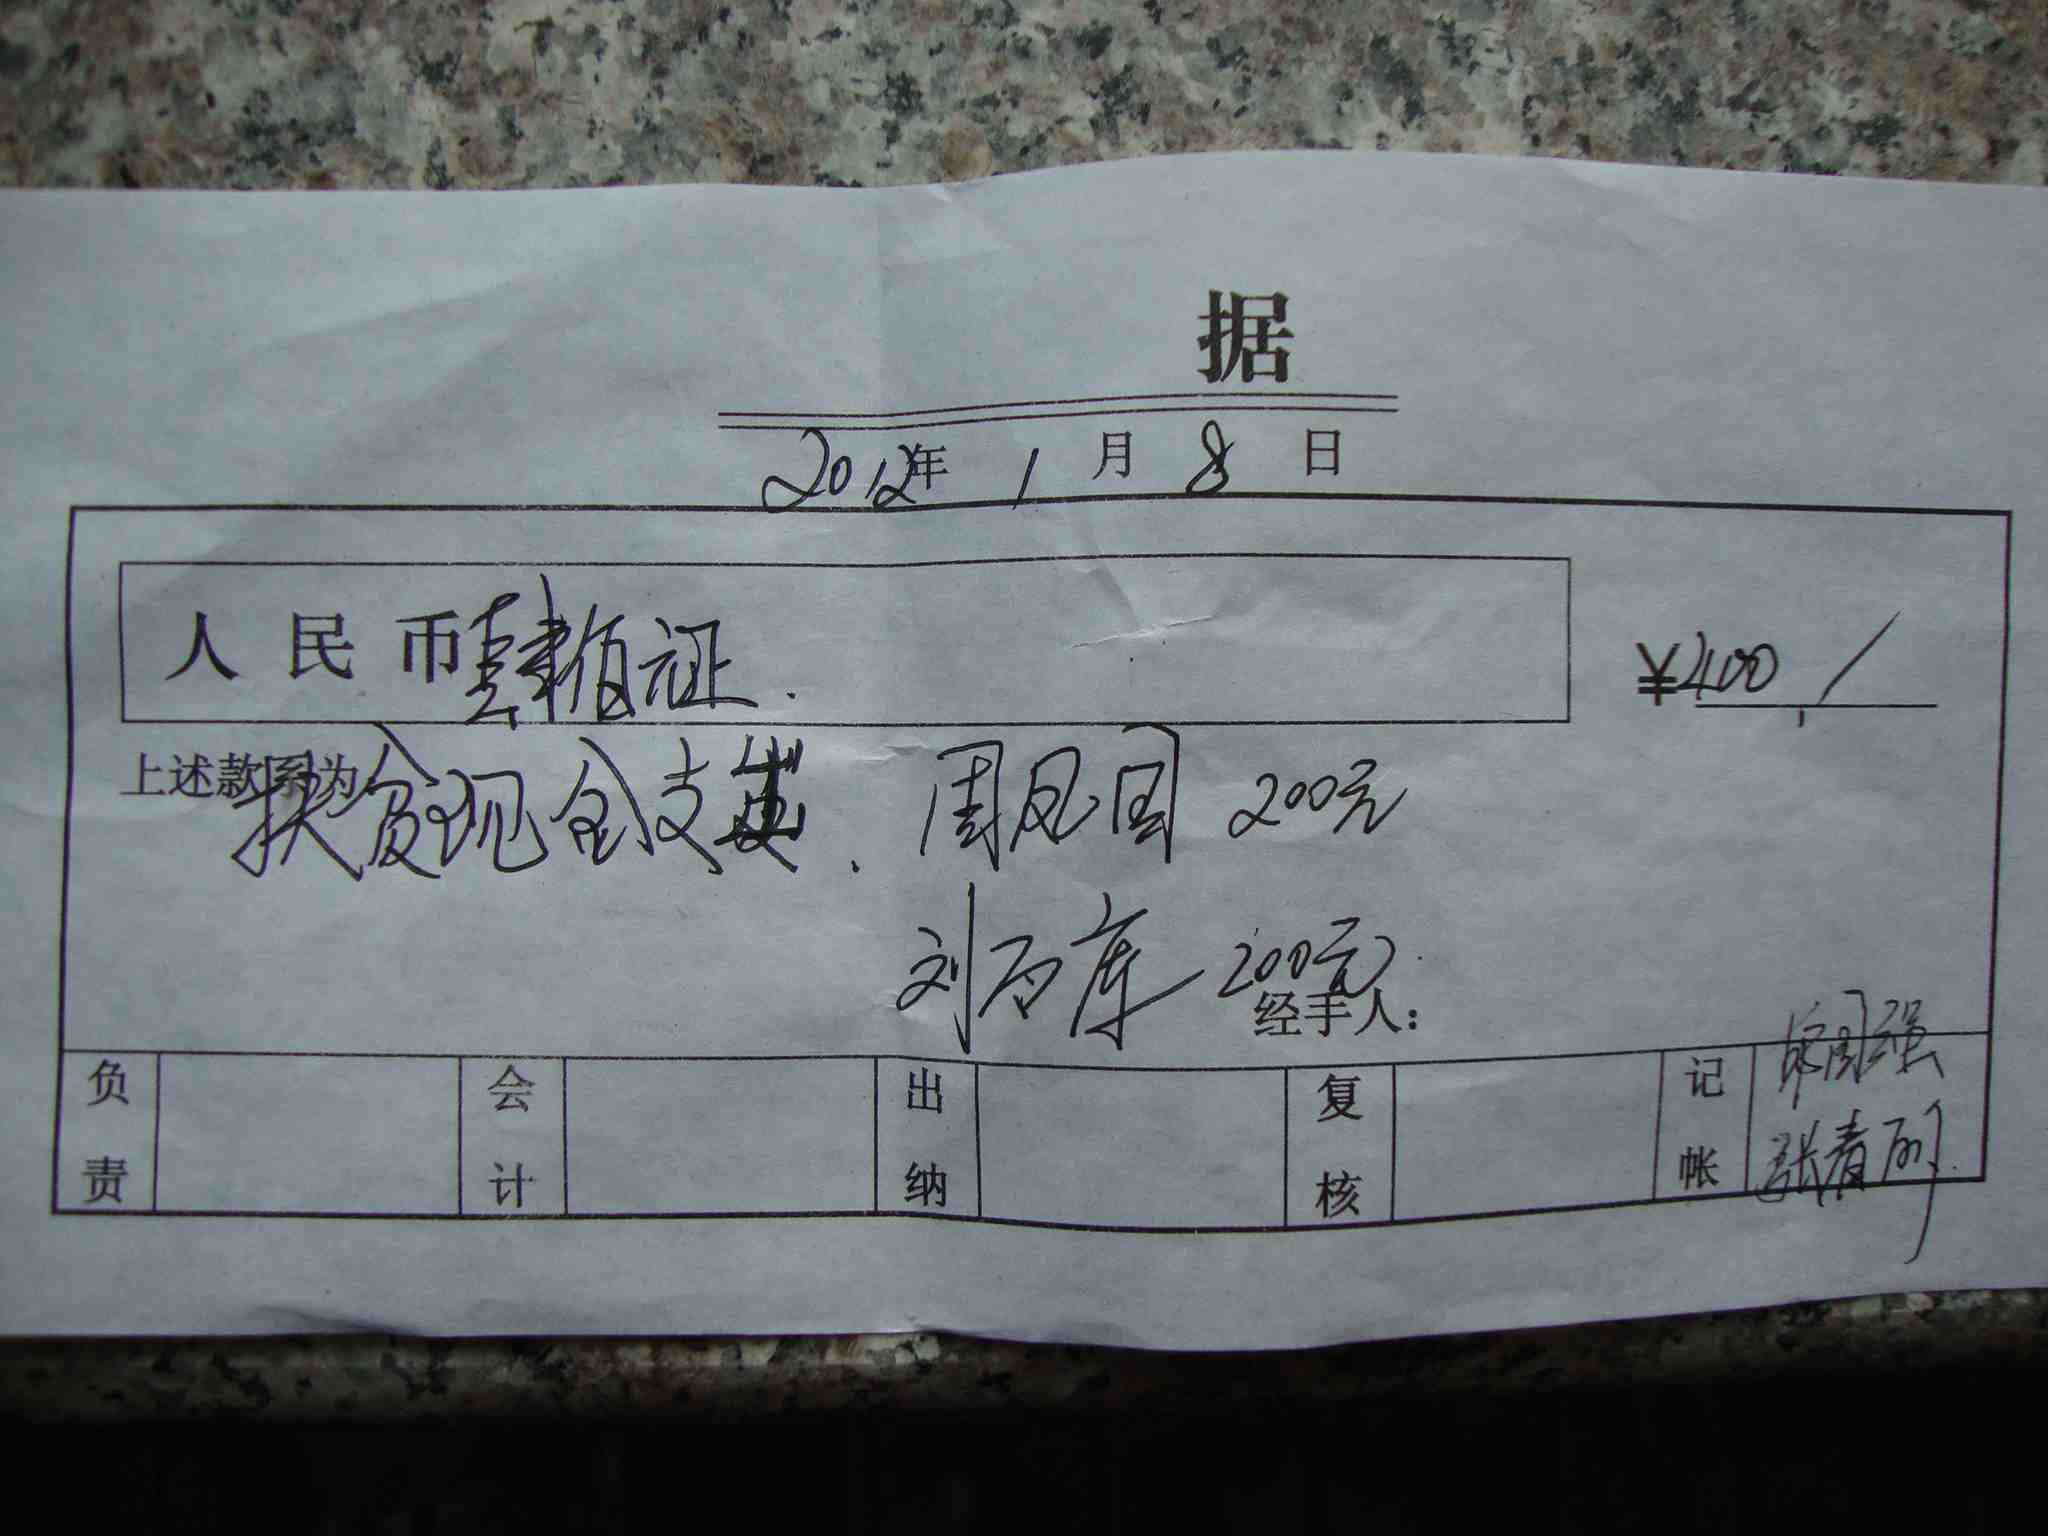 据
2012年 1 月 8 日
人民币肆佰元正.
¥400/
上述款系为扶贫现金支出. 周凤国 200元
刘百库 200元.
经手人:
负责 会计 出纳 复核 记帐
张春丽